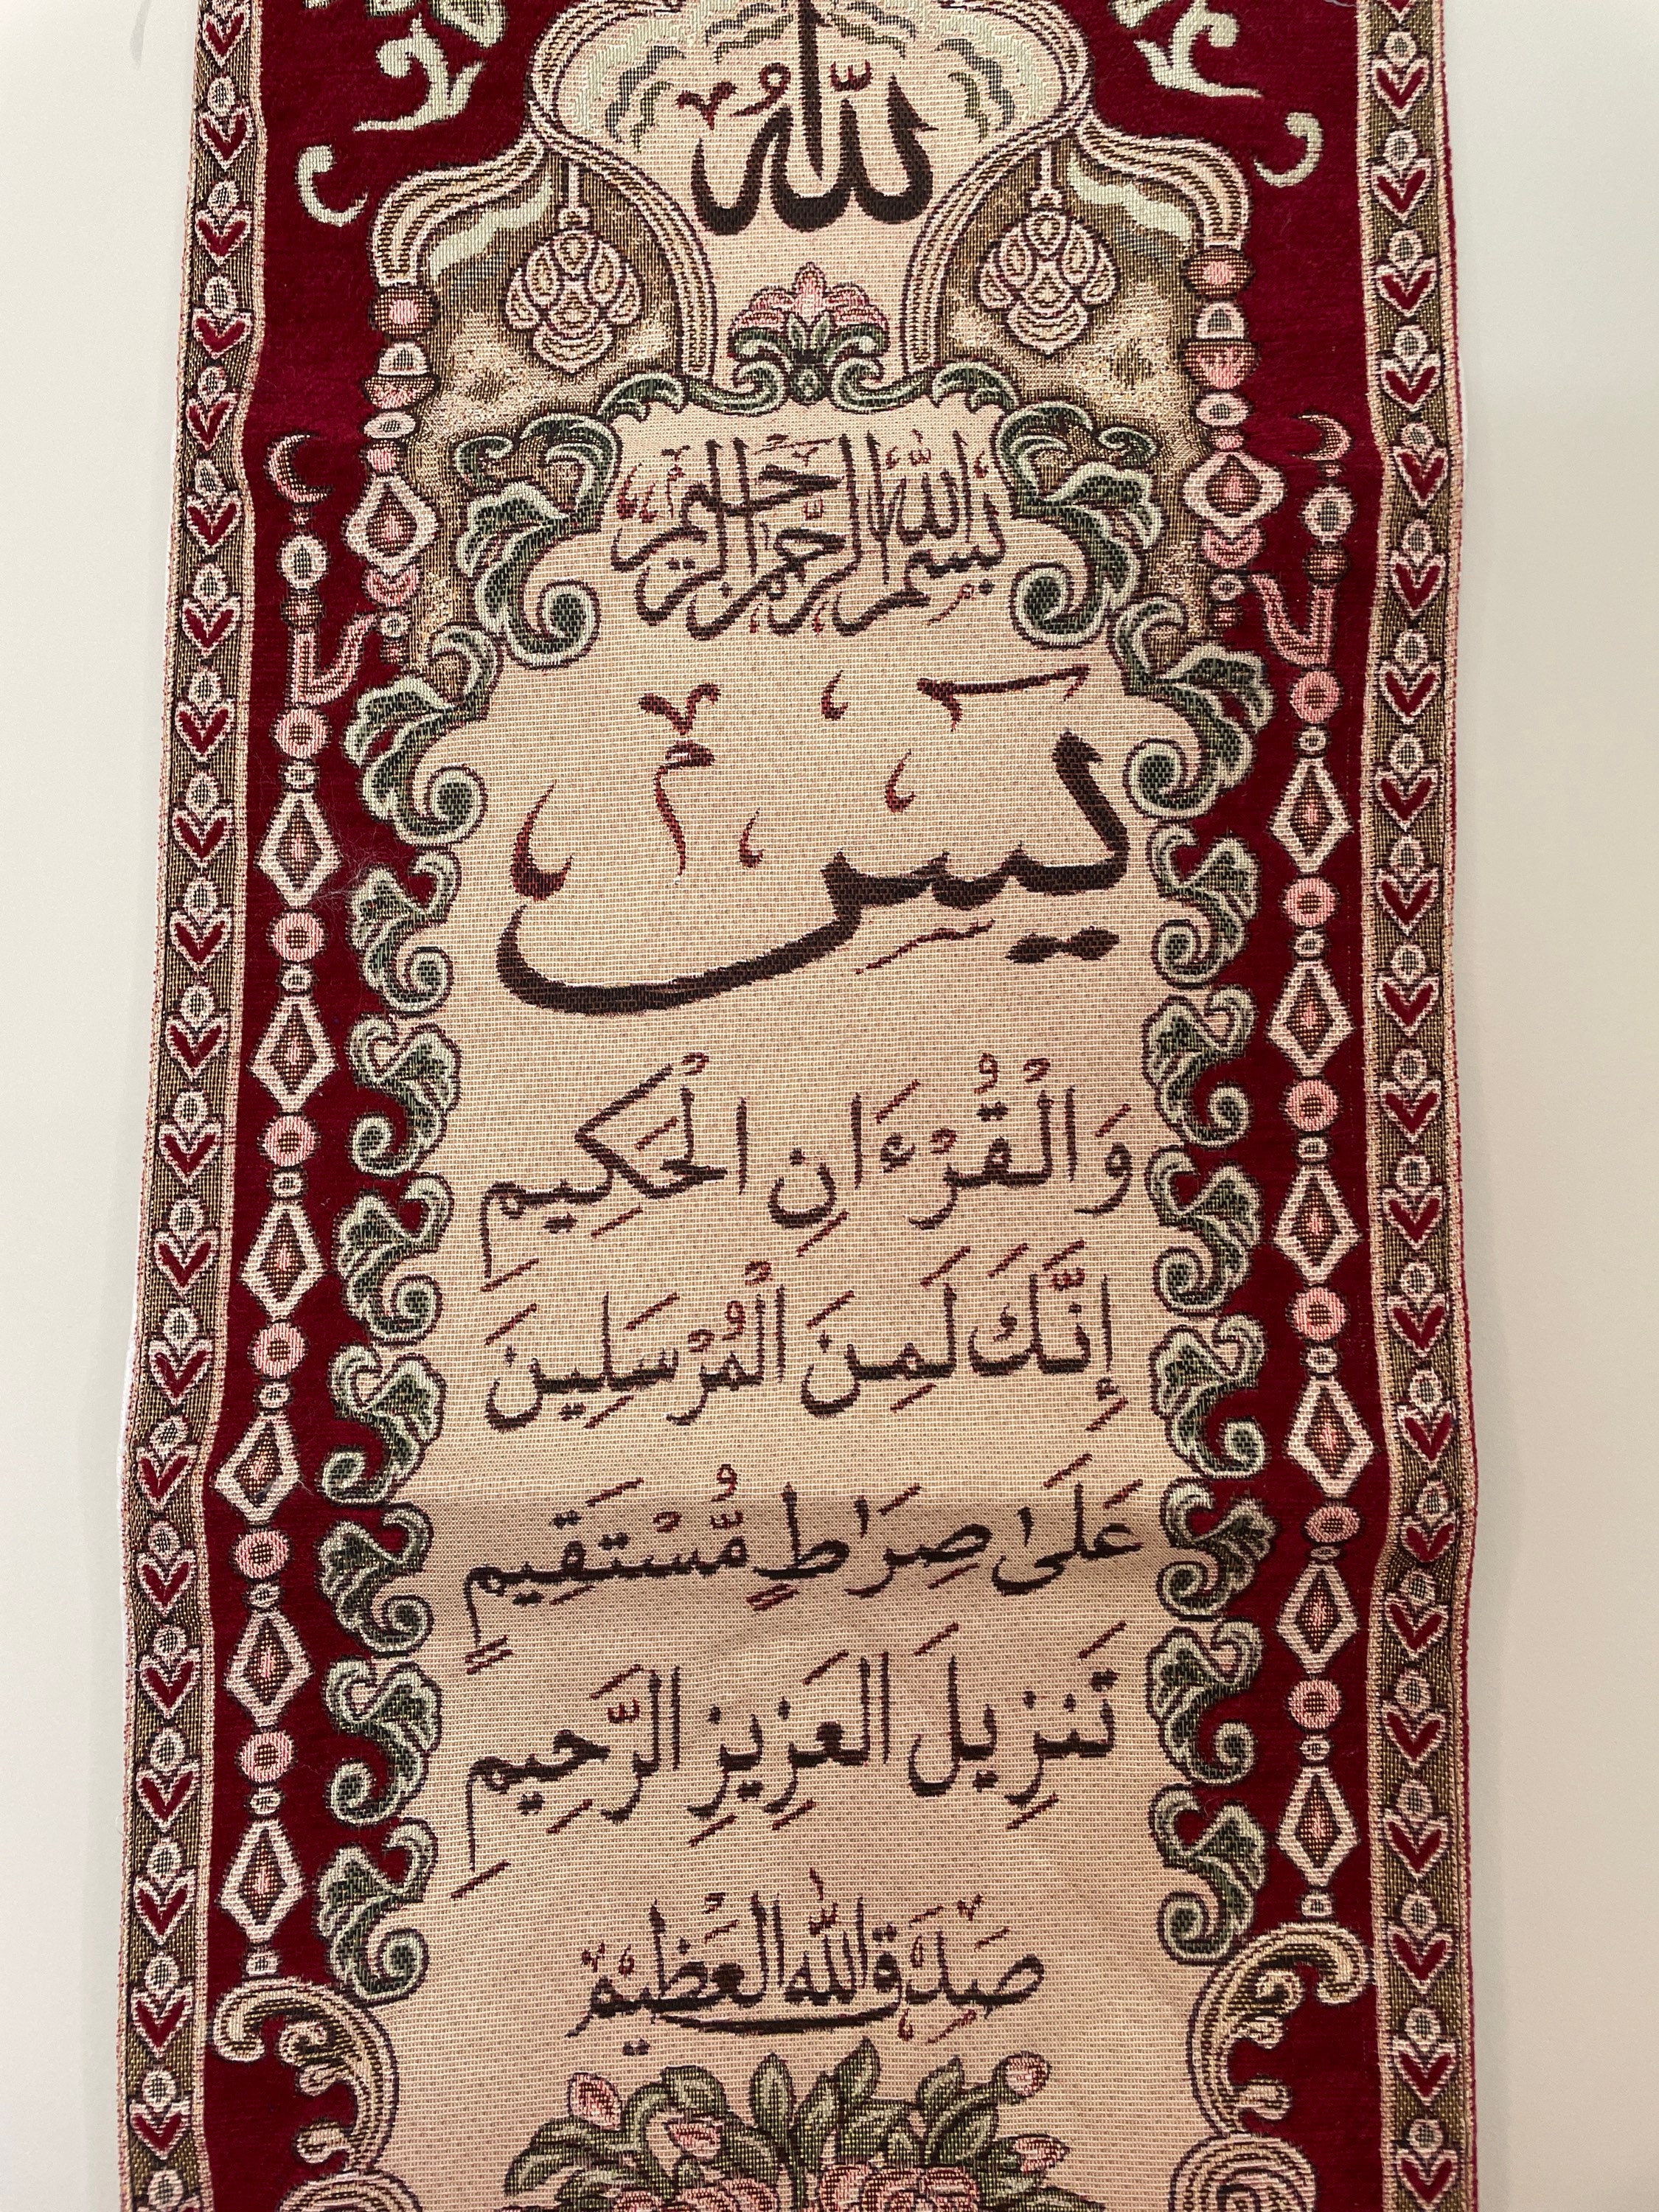 الله
بسم الله الرحمن الرحيم
يس
وَالْقُرْءَانِ الْحَكِيمِ
إِنَّكَ لَمِنَ الْمُرْسَلِينَ
عَلَى صِرَاطٍ مُّسْتَقِيمٍ
تَنزِيلَ الْعَزِيزِ الرَّحِيمِ
صَدَقَ الله الْعَظِيم